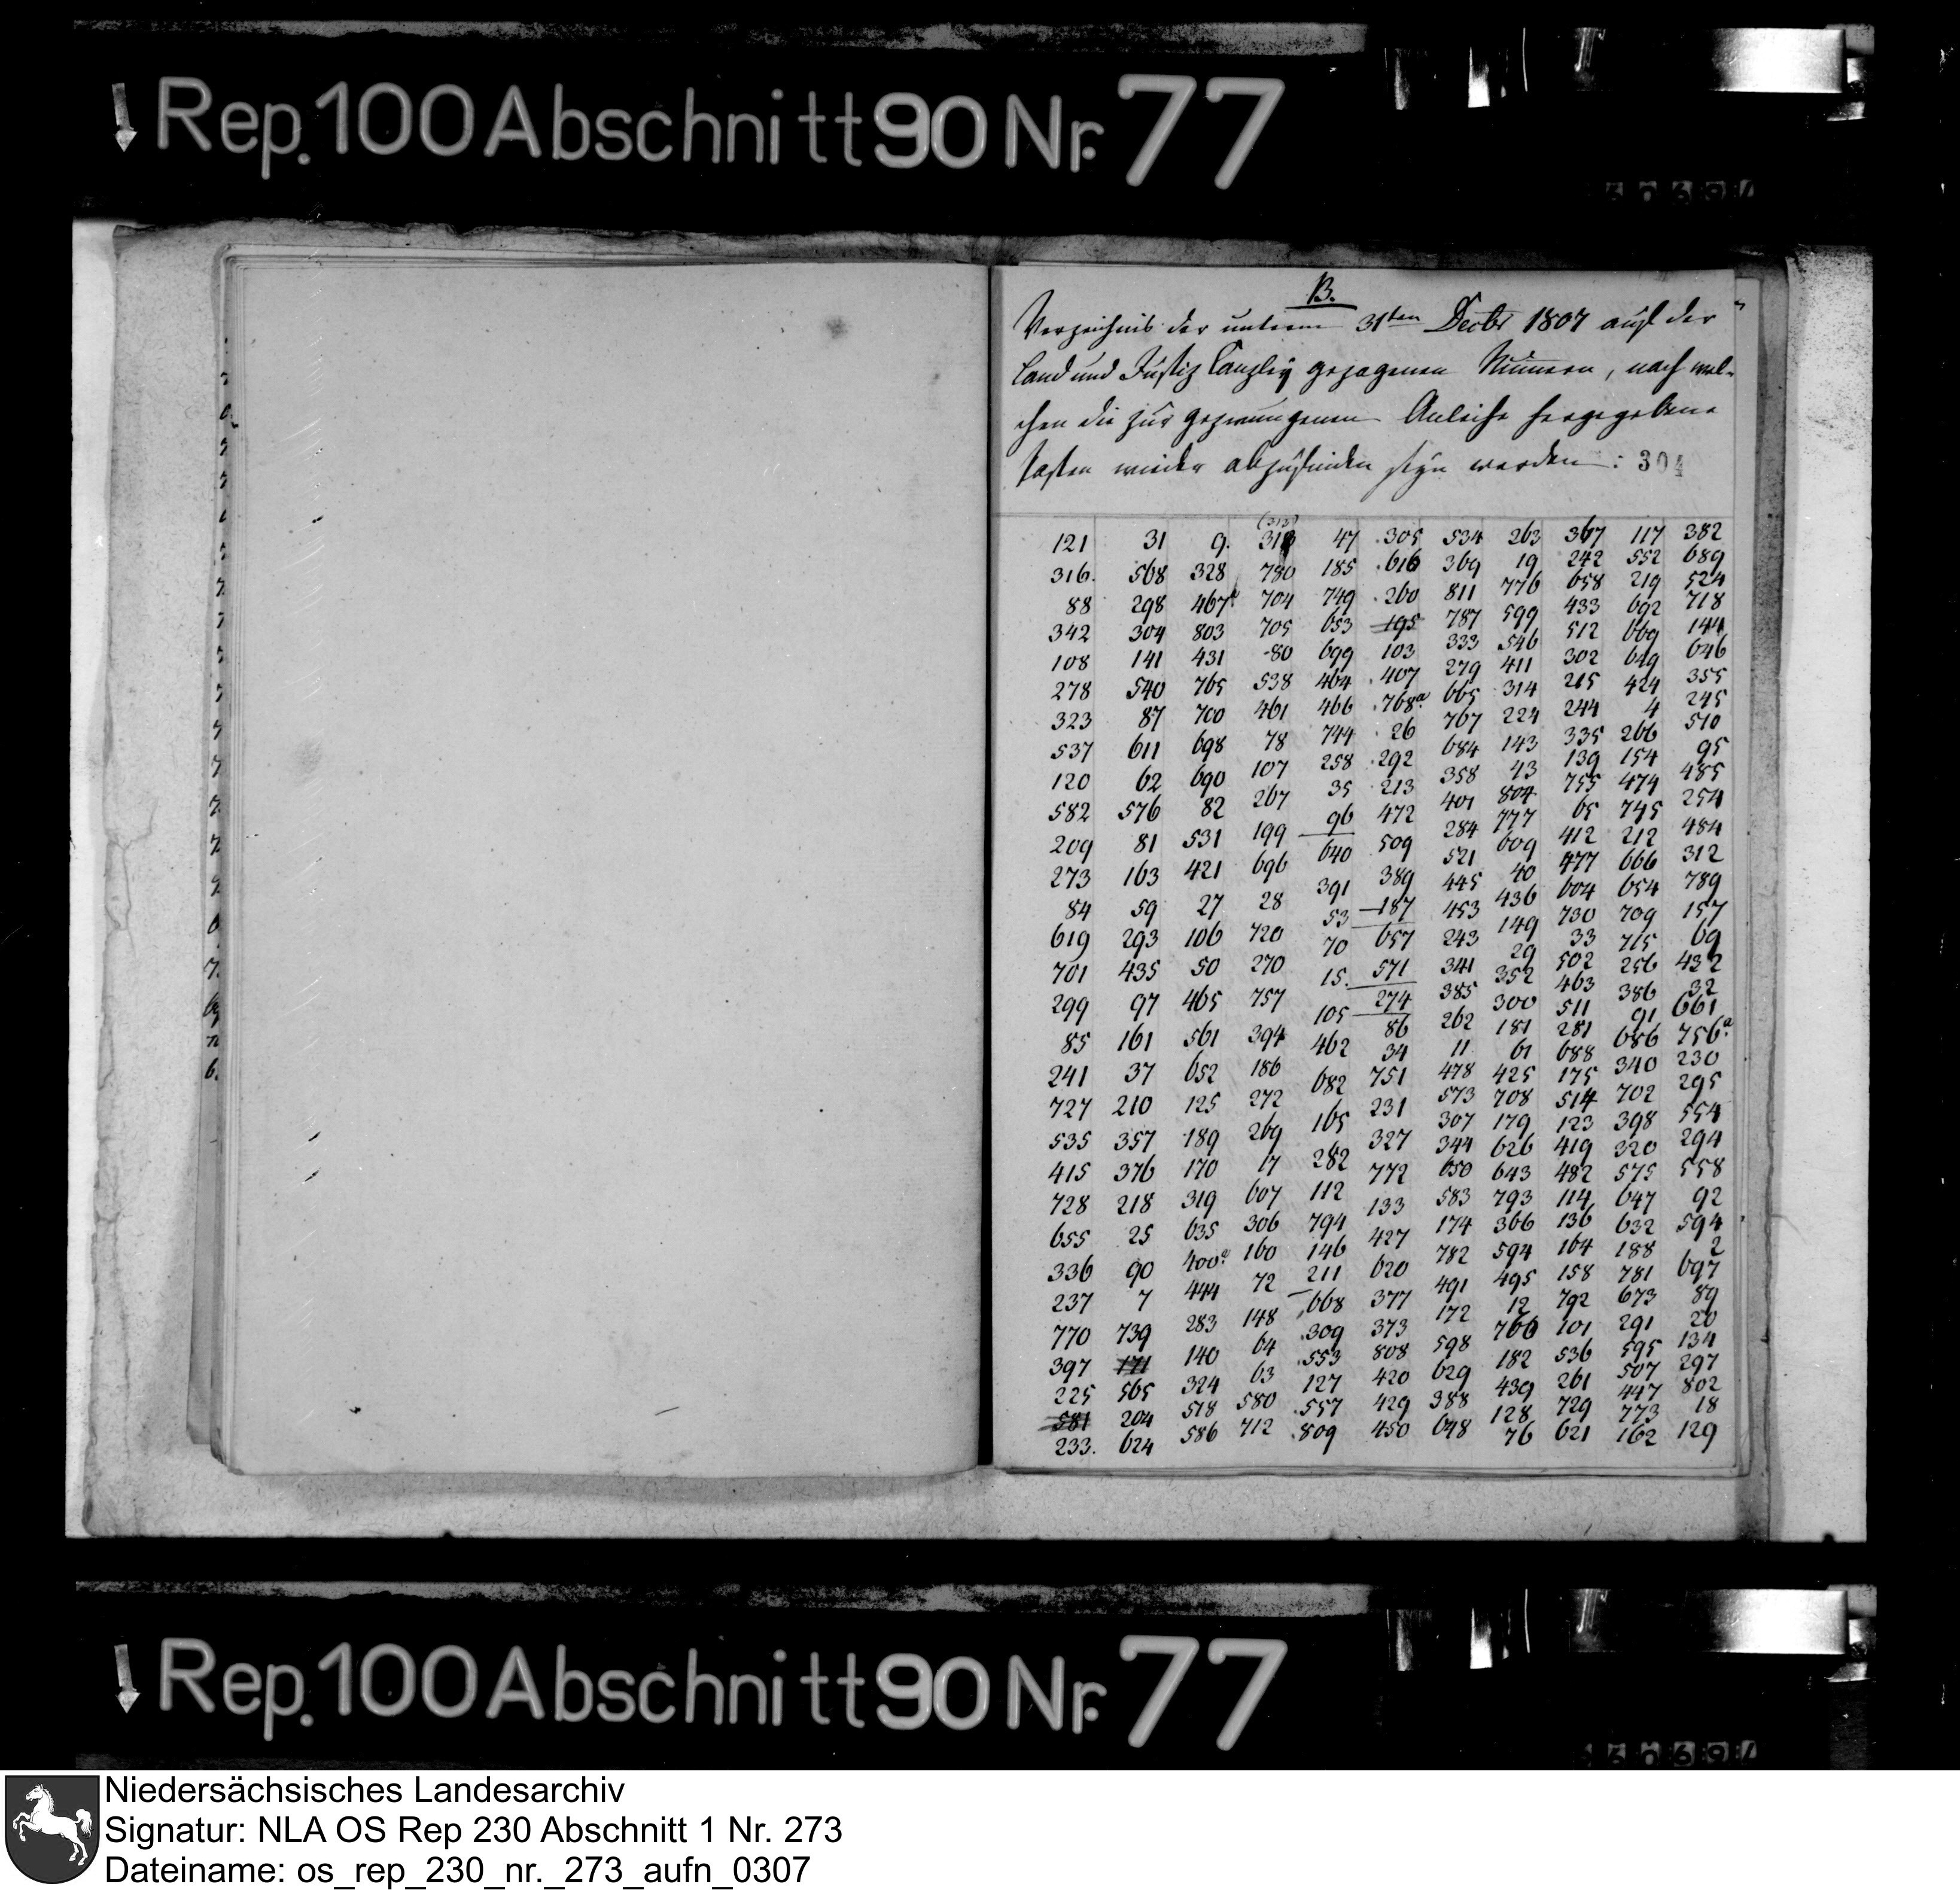 Rep. 100 Abschnitt 90 Nr. 77
B.
Verzeichnis der unterm 31ten Decbr 1807 auf der
Land und Justiz Canzley gezogenen Numern, nach wel-
chen die zur gezwungenen Anleihe hergegebene
Posten wieder abzufinden seyn werden: 304
(313)
121 31 9. 318 47 305 534 263 367 117 382
316. 568 328 780 185 616 369 19 242 552 689
88 298 467a 704 749 260 811 776 658 219 524
342 304 803 705 653 195 787 599 433 692 718
108 141 431 80 699 103 333 546 512 669 144
278 540 765 538 464 407 279 411 302 649 646
323 87 700 461 466 768a 665 314 215 424 355
537 611 698 78 744 26 767 224 244 4 245
120 62 690 107 258 292 684 143 335 266 510
582 576 82 267 35 213 358 43 139 154 95
209 81 531 199 96 472 401 804 755 474 485
273 163 421 696 640 509 284 777 65 745 254
84 59 27 28 391 389 521 609 412 212 484
619 293 106 720 53 187 445 40 477 666 312
701 435 50 270 70 657 453 436 604 654 789
299 97 465 757 15. 571 243 149 730 709 157
85 161 561 394 105 274 341 29 33 715 69
241 37 652 186 462 86 385 352 502 256 432
727 210 125 272 682 34 262 300 463 386 32
535 357 189 269 165 751 11 181 511 91 661
415 376 170 17 282 231 478 61 281 686 756a
728 218 319 607 112 327 573 425 688 340 230
655 25 635 306 794 772 307 708 175 702 295
336 90 400a 160 146 133 344 179 514 398 554
237 7 444 72 211 427 650 626 123 320 294
770 739 283 148 668 620 583 643 419 575 558
397 171 140 64 309 377 174 793 482 647 92
225 565 324 63 553 373 782 366 114 632 594
581 204 518 580 127 808 491 594 136 188 2
233. 624 586 712 557 420 172 495 164 781 697
809 429 598 12 158 673 89
450 629 766 792 291 20
388 182 101 595 134
648 439 536 507 297
128 261 447 802
76 729 773 18
621 162 129
Rep. 100 Abschnitt 90 Nr. 77
Niedersächsisches Landesarchiv
Signatur: NLA OS Rep 230 Abschnitt 1 Nr. 273
Dateiname: os_rep_230_nr._273_aufn_0307